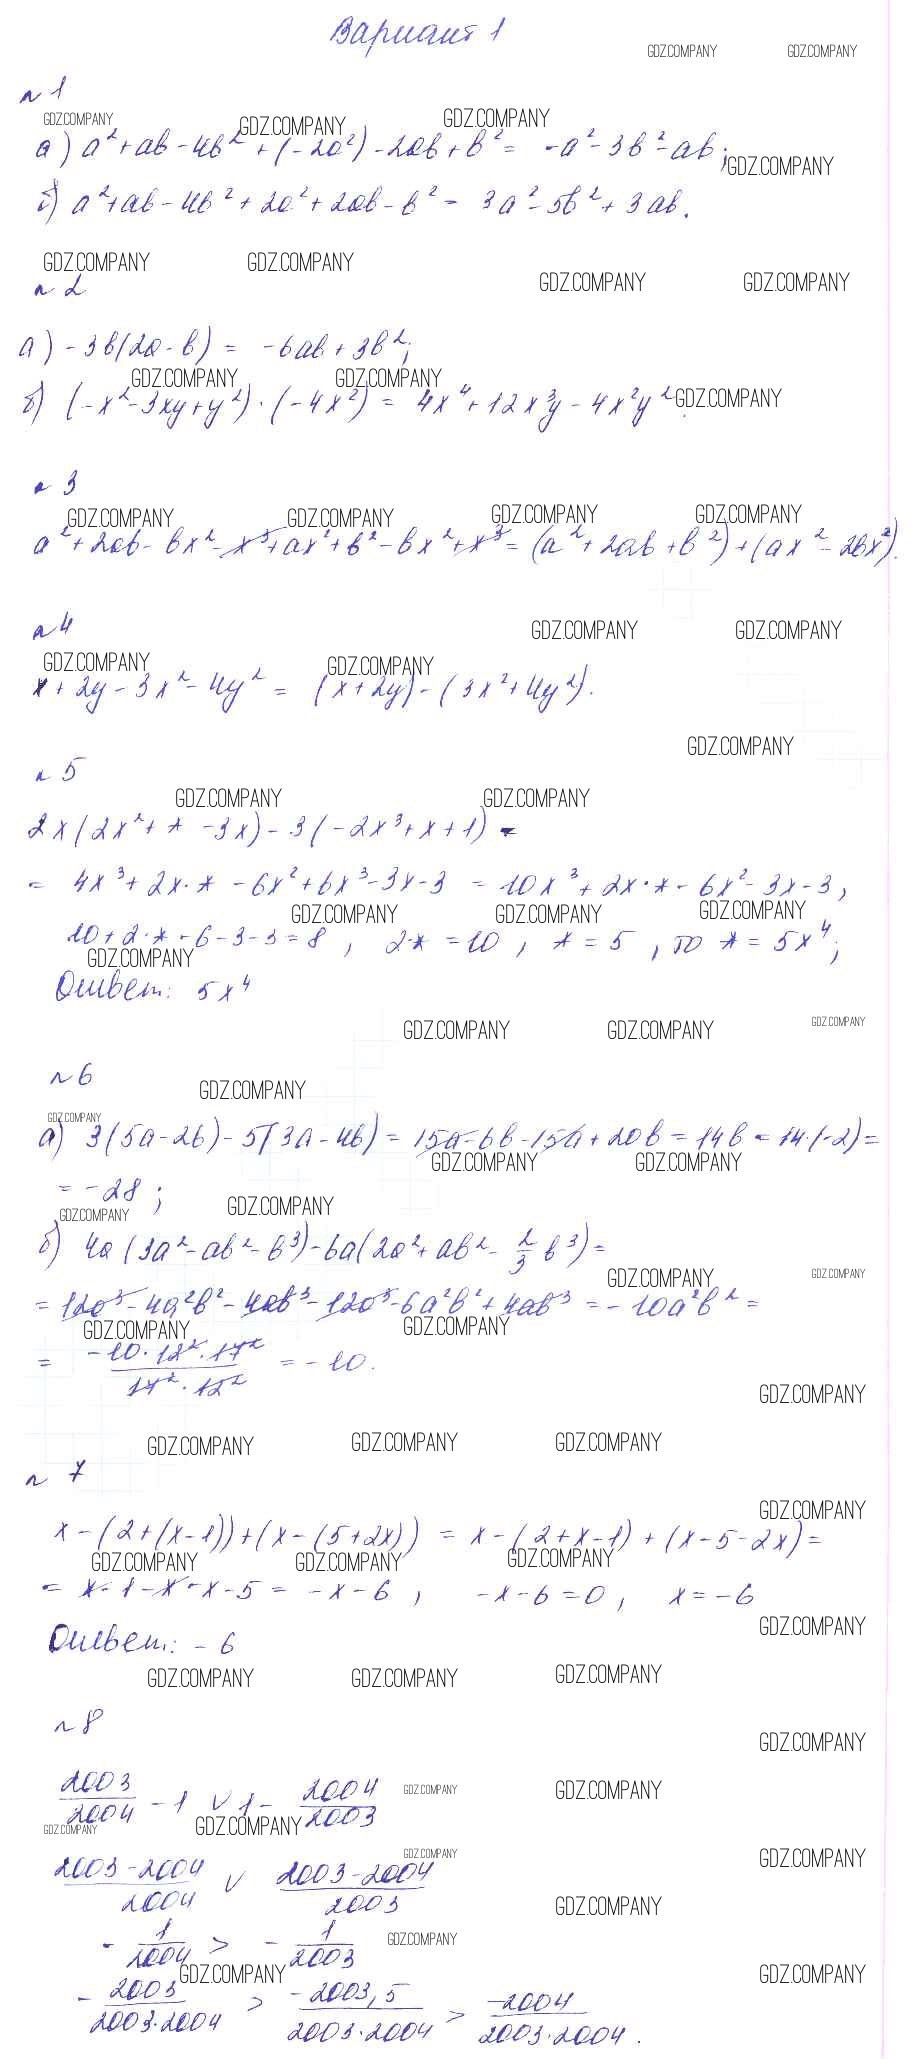 Вариант 1
GDZ.COMPANY GDZ.COMPANY
n 1
GDZ.COMPANY GDZ.COMPANY GDZ.COMPANY
а) a² + ab - 4b² + (-2a²) - 2ab + b² = -a² - 3b² - ab;
GDZ.COMPANY
б) a² + ab - 4b² + 2a² + 2ab - b² = 3a² - 5b² + 3ab.
GDZ.COMPANY GDZ.COMPANY GDZ.COMPANY GDZ.COMPANY
n 2
а) -3b(2a - b) = -6ab + 3b²;
GDZ.COMPANY GDZ.COMPANY GDZ.COMPANY
б) (-x² - 3xy + y²) · (-4x²) = 4x⁴ + 12x³y - 4x²y².
n 3
GDZ.COMPANY GDZ.COMPANY GDZ.COMPANY GDZ.COMPANY
a² + 2ab - bx² - x³ + ax² + b² - bx² + x³ = (a² + 2ab + b²) + (ax² - 2bx²).
n 4
GDZ.COMPANY GDZ.COMPANY
GDZ.COMPANY GDZ.COMPANY
x + 2y - 3x² - 4y² = (x + 2y) - (3x² + 4y²).
GDZ.COMPANY
n 5
GDZ.COMPANY GDZ.COMPANY
2x(2x² + * - 3x) - 3(-2x³ + x + 1) =
= 4x³ + 2x·* - 6x² + 6x³ - 3x - 3 = 10x³ + 2x·* - 6x² - 3x - 3,
GDZ.COMPANY GDZ.COMPANY GDZ.COMPANY
10 + 2·* - 6 - 3 - 3 = 8, 2·* = 10, * = 5, то * = 5x⁴;
GDZ.COMPANY
Ответ: 5x⁴
GDZ.COMPANY GDZ.COMPANY GDZ.COMPANY
n 6
GDZ.COMPANY
GDZ.COMPANY
а) 3(5a - 2b) - 5(3a - 4b) = 15a - 6b - 15a + 20b = 14b = 14·(-2) =
GDZ.COMPANY GDZ.COMPANY
= -28;
GDZ.COMPANY GDZ.COMPANY
б) 4a(3a² - ab² - b³) - 6a(2a² + ab² - 2/3 b³) =
GDZ.COMPANY GDZ.COMPANY
= 12a³ - 4a²b² - 4ab³ - 12a³ - 6a²b² + 4ab³ = -10a²b² =
GDZ.COMPANY GDZ.COMPANY
= -10·12²·17² / 17²·12² = -10.
GDZ.COMPANY
GDZ.COMPANY GDZ.COMPANY GDZ.COMPANY
n 7
GDZ.COMPANY
x - (2 + (x - 1)) + (x - (5 + 2x)) = x - (2 + x - 1) + (x - 5 - 2x) =
GDZ.COMPANY GDZ.COMPANY GDZ.COMPANY
= x - 1 - x - x - 5 = -x - 6, -x - 6 = 0, x = -6
GDZ.COMPANY
Ответ: -6
GDZ.COMPANY GDZ.COMPANY GDZ.COMPANY
n 8
GDZ.COMPANY
2003/2004 - 1 ∨ 1 - 2004/2003
GDZ.COMPANY GDZ.COMPANY
GDZ.COMPANY GDZ.COMPANY
GDZ.COMPANY GDZ.COMPANY
2003 - 2004 / 2004 ∨ 2003 - 2004 / 2003
GDZ.COMPANY
- 1/2004 > - 1/2003
GDZ.COMPANY
GDZ.COMPANY GDZ.COMPANY
- 2003 / 2003·2004 > -2003,5 / 2003·2004 > -2004 / 2003·2004.